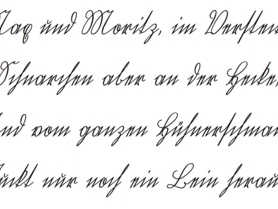 Max und Moritz, im Verstec
Schnarchen aber an der Hecke,
Und vom ganzen Hühnerschmau
uckt nur noch ein Bein herau